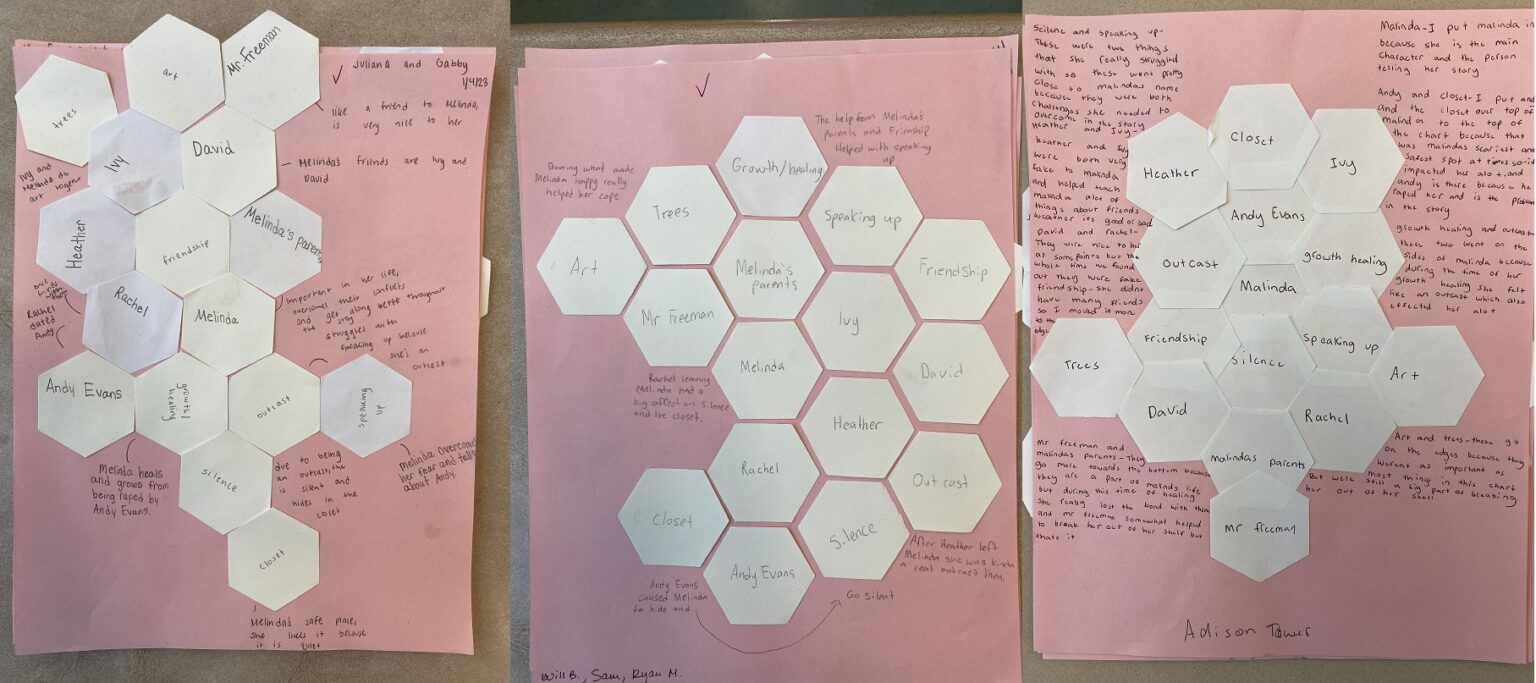 Juliana and Gabby
1/4/23
art
Mr. Freeman
like a friend to Melinda,
is very nice to her
trees
Ivy
David
Melinda's friends are Ivy and
David
Ivy and
Melinda do
art together
Heather
friendship
Melinda's parents
Rachel
Melinda
important in her life,
overcomes their conflicts
and get along better throughout
the story
Rachel
dated
Andy
struggles with
speaking up because
she's an
outcast
Andy Evans
growth/
healing
outcast
speaking
up
Melinda heals
and grows from
being raped by
Andy Evans.
silence
due to being
an outcast, she
is silent and
hides in the
closet
Melinda overcomes
her fear and tells
about Andy.
closet
Melinda's safe place,
she likes it because
it is quiet
The help from Melinda's
parents and Frienship
Helped with speaking
up
Drawing what made
Melinda happy really
helped her cope
Growth/healing
Trees
Speaking up
Art
Melinda's
parents
Friendship
Mr Freeman
Ivy
Melinda
David
Rachel leaving
Melinda had a
big affect on Silence
and the closet.
Heather
Rachel
Outcast
Closet
Silence
Andy Evans
After Heather left
Melinda she was kinda
a real outcast then.
Andy Evans
caused Melinda
to hide and
Go silent
Will B., Sam, Ryan M.
Scilence and speaking up-
These were two things
that she really struggled
with so these went pretty
close to malindas name
because they were both
challenges she needed to
overcome in the story
Heather and Ivy-
hearher and Ivy
were both very
fake to malinda
and helped teach
malinda alot of
things about friends
weather its good or bad
David and rachel-
They were nice to her
at some points but the
whole time we found
out they were fake
friendship-she didnt
have many friends
so I moved it more
to the
edge
Malinda-I put malinda in
because she is the main
character and the person
telling her story
Andy and closet-I put andy
and the closet over top of
malinda to the top of
the chart because that
was malindas scariest and
safest spot at times so it
impacted her alot and
andy is there because he
raped her and is the problem
in the story
growth healing and outcast-
these two went on the
sides of malinda because
during the time of her
growth healing she felt
like an outcast which also
effected her alot
Closet
Heather
Ivy
Andy Evans
outcast
growth healing
Malinda
Friendship
Speaking up
Trees
Silence
Art
David
Rachel
Malindas parents
Mr freeman
Mr freeman and
malindas parents-They
go more towards the bottom because
they are a part of malinds life
but during this time of healing
she really lost the bond with them
and mr freeman somewhat helped
to break her out of her shelf but
thats it
Art and trees-these go
on the edges because they
werent as important as
most things in this chart
But were still a big part of
her out of her shell
Adison